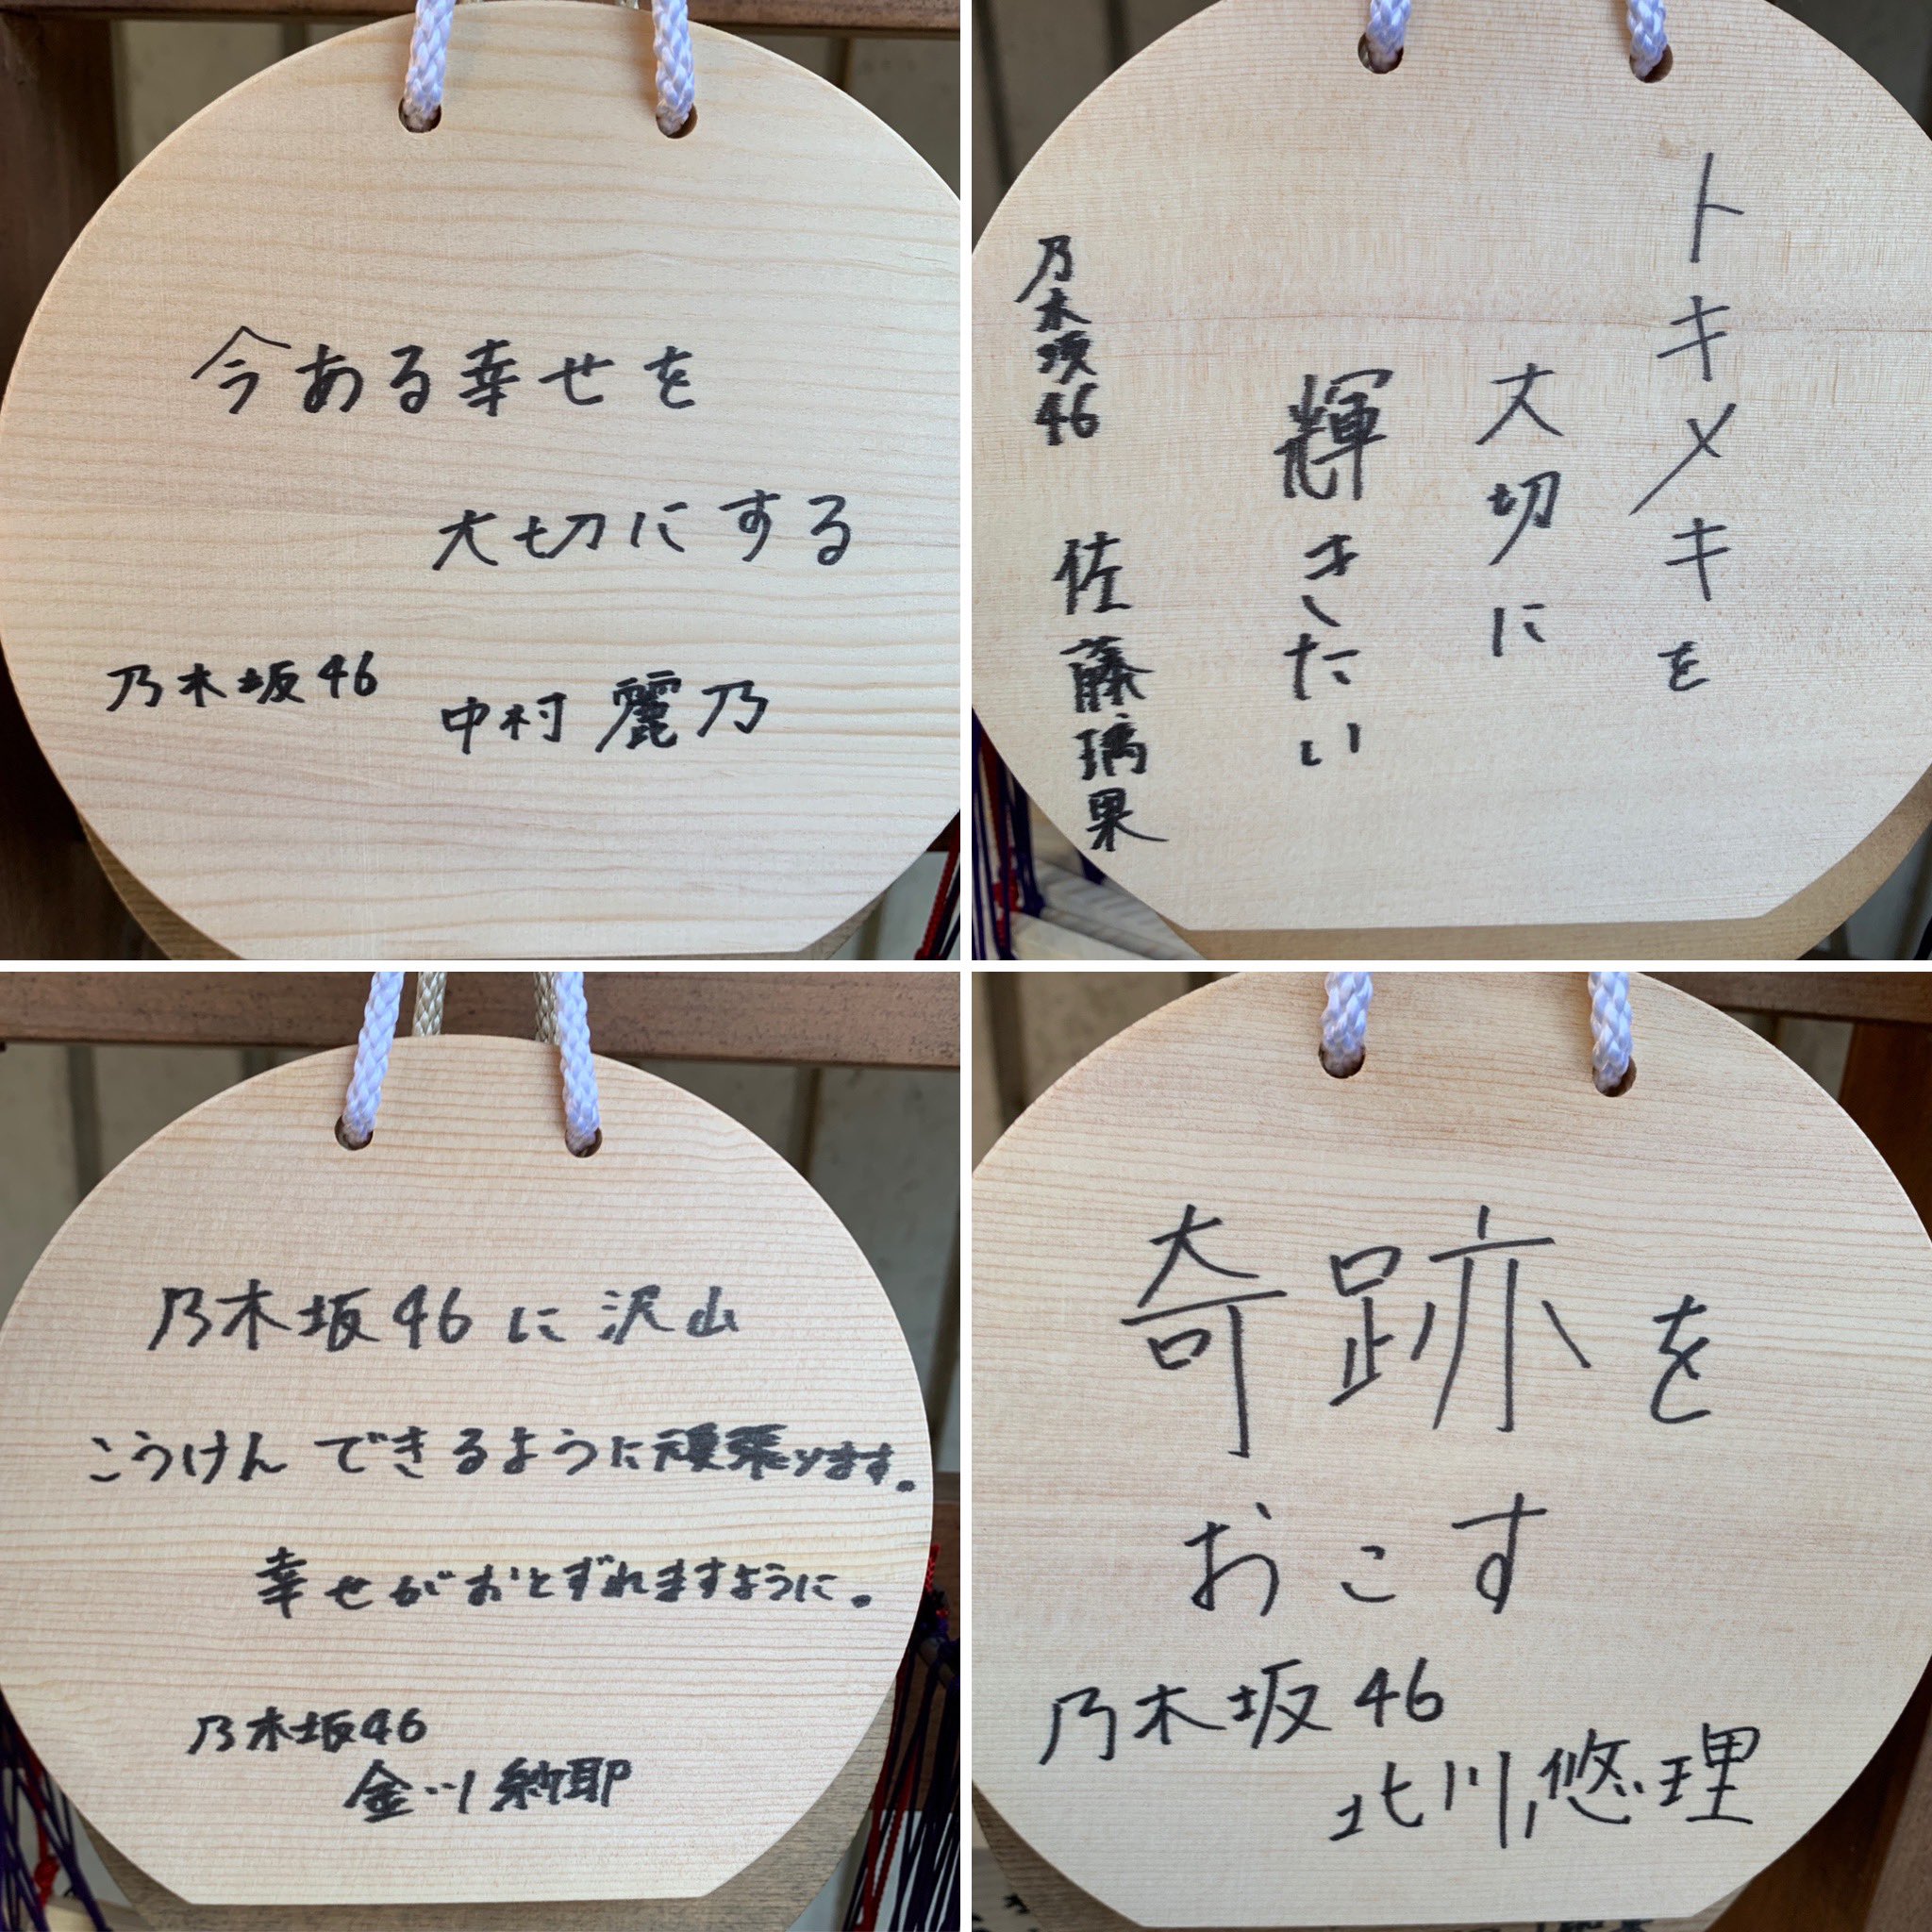 今ある幸せを
大切にする
乃木坂46 中村麗乃
トキメキを
大切に
輝きたい
乃木坂46 佐藤璃果
乃木坂46に沢山
こうけんできるように頑張ります。
幸せがおとずれますように。
乃木坂46
金川紗耶
奇跡を
おこす
乃木坂46
北川悠理